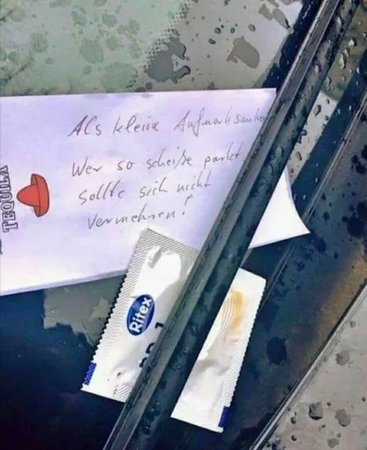 Als kleine Aufmerksamkei
Wer so scheiße parkt
sollte sich nicht
vermehren!
TEQUILA
Ritex